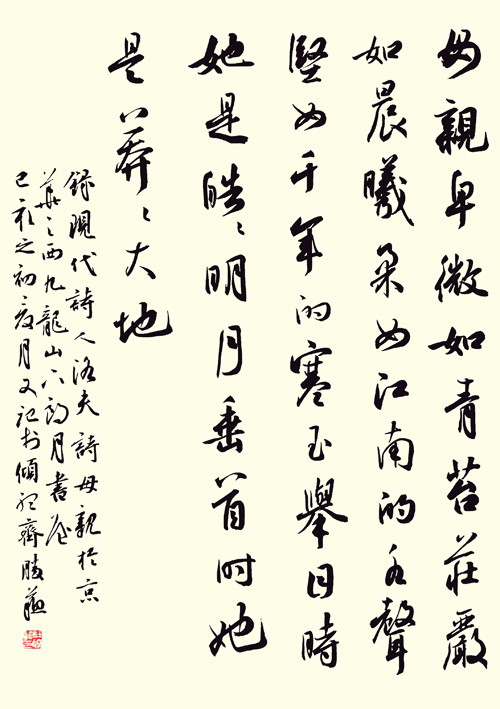 母親卑微如青苔莊嚴
如晨曦柔如江南的水聲
堅如千年的寒玉舉目時
她是皓〻明月垂首时她
是莽〻大地
錄現代詩人洛夫詩母親於京
華之西九龍山
之初夏月又記於傾聽齋勝